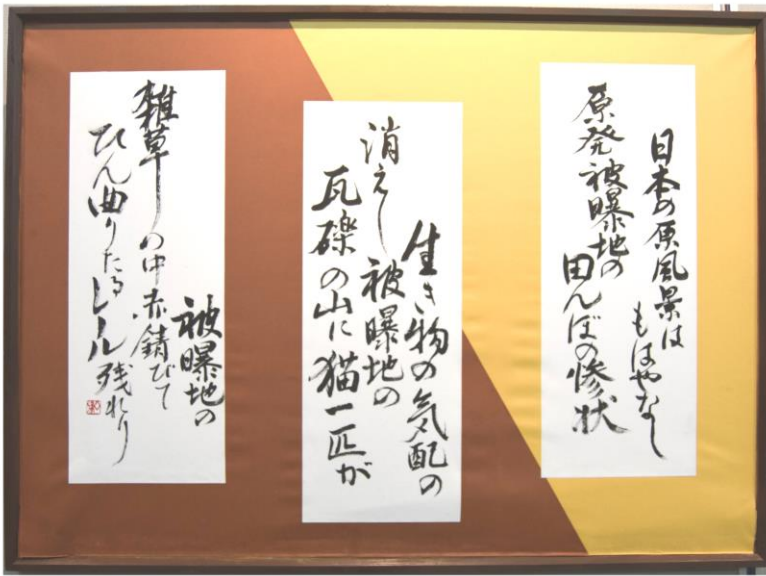 日本の原風景は
もはやなし
原発被曝地の
田んぼの惨状
生き物の気配の
消えし被曝地の
瓦礫の山に猫一匹が
被曝地の
雑草の中赤錆びて
ひん曲りたるレール残れり